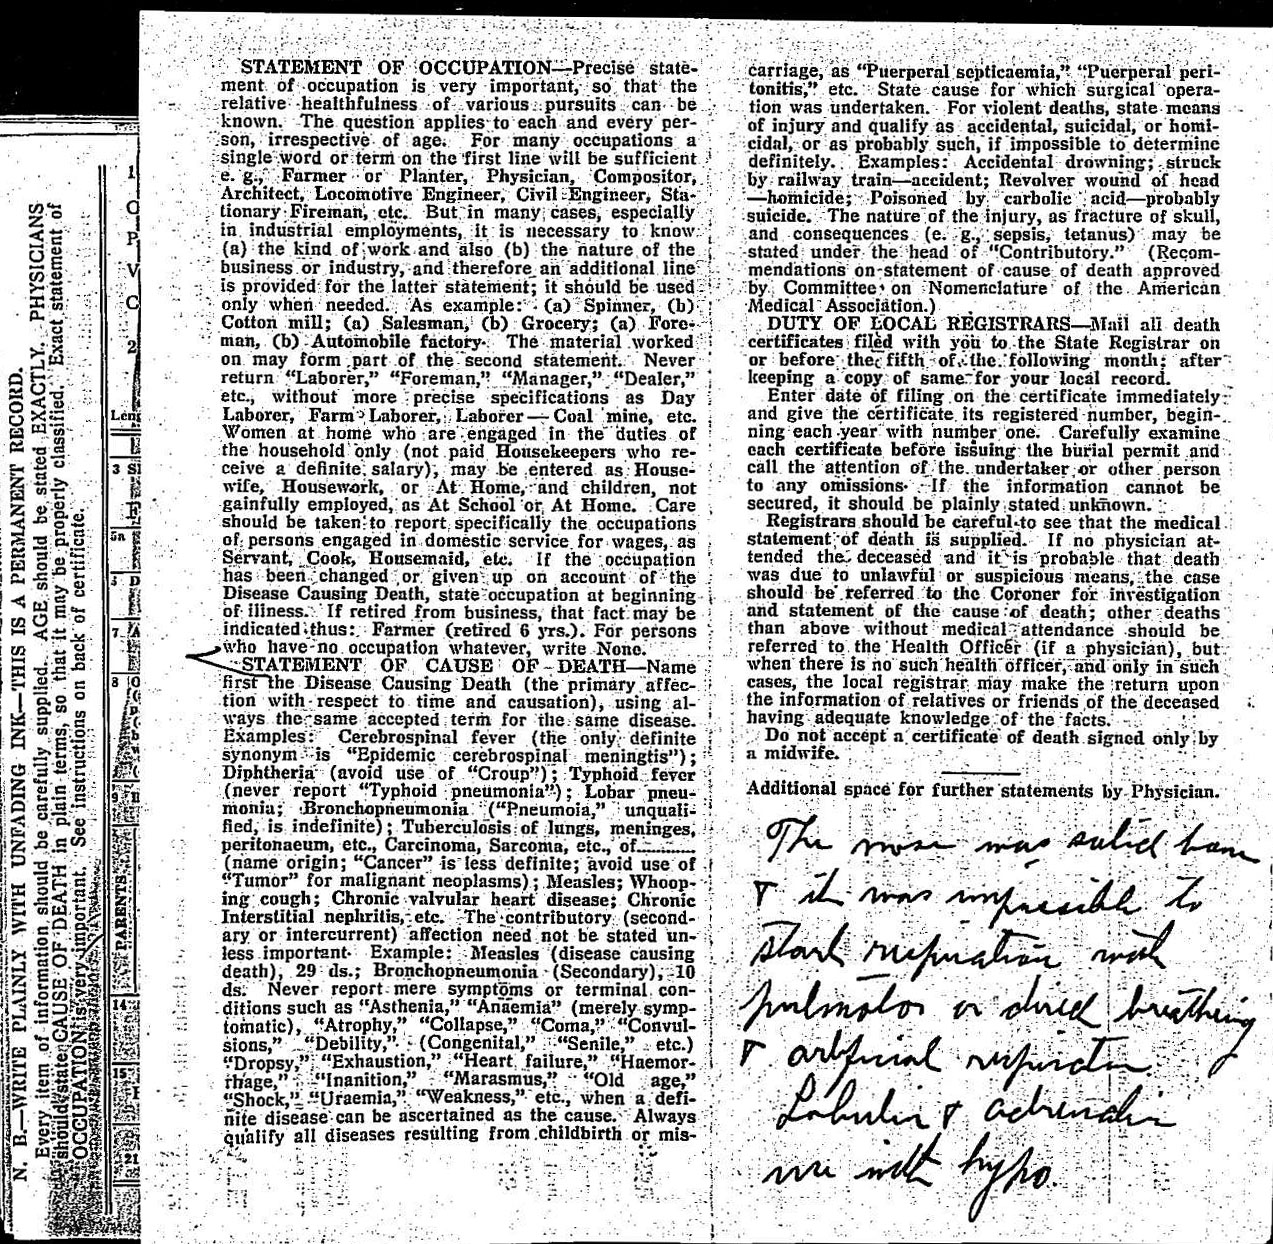 N. B.—WRITE PLAINLY WITH UNFADING INK—THIS IS A PERMANENT RECORD.
Every item of information should be carefully supplied. AGE should be stated EXACTLY. PHYSICIANS
should state CAUSE OF DEATH in plain terms, so that it may be properly classified. Exact statement of
OCCUPATION is very important. See instructions on back of certificate.
PARENTS
STATEMENT OF OCCUPATION—Precise state-
ment of occupation is very important, so that the
relative healthfulness of various pursuits can be
known. The question applies to each and every per-
son, irrespective of age. For many occupations a
single word or term on the first line will be sufficient
e. g., Farmer or Planter, Physician, Compositor,
Architect, Locomotive Engineer, Civil Engineer, Sta-
tionary Fireman, etc. But in many cases, especially
in industrial employments, it is necessary to know
(a) the kind of work and also (b) the nature of the
business or industry, and therefore an additional line
is provided for the latter statement; it should be used
only when needed. As example: (a) Spinner, (b)
Cotton mill; (a) Salesman, (b) Grocery; (a) Fore-
man, (b) Automobile factory. The material worked
on may form part of the second statement. Never
return "Laborer," "Foreman," "Manager," "Dealer,"
etc., without more precise specifications as Day
Laborer, Farm Laborer, Laborer—Coal mine, etc.
Women at home who are engaged in the duties of
the household only (not paid Housekeepers who re-
ceive a definite salary), may be entered as House-
wife, Housework, or At Home, and children, not
gainfully employed, as At School or At Home. Care
should be taken to report specifically the occupations
of persons engaged in domestic service for wages, as
Servant, Cook, Housemaid, etc. If the occupation
has been changed or given up on account of the
Disease Causing Death, state occupation at beginning
of illness. If retired from business, that fact may be
indicated thus: Farmer (retired 6 yrs.). For persons
who have no occupation whatever, write None.
STATEMENT OF CAUSE OF DEATH—Name
first the Disease Causing Death (the primary affec-
tion with respect to time and causation), using al-
ways the same accepted term for the same disease.
Examples: Cerebrospinal fever (the only definite
synonym is "Epidemic cerebrospinal meningtis");
Diphtheria (avoid use of "Croup"); Typhoid fever
(never report "Typhoid pneumonia"); Lobar pneu-
monia; Bronchopneumonia ("Pneumoia," unquali-
fied, is indefinite); Tuberculosis of lungs, meninges,
peritonaeum, etc., Carcinoma, Sarcoma, etc., of..........
(name origin; "Cancer" is less definite; avoid use of
"Tumor" for malignant neoplasms); Measles; Whoop-
ing cough; Chronic valvular heart disease; Chronic
Interstitial nephritis, etc. The contributory (second-
ary or intercurrent) affection need not be stated un-
less important. Example: Measles (disease causing
death), 29 ds.; Bronchopneumonia (Secondary), 10
ds. Never report mere symptoms or terminal con-
ditions such as "Asthenia," "Anaemia" (merely symp-
tomatic), "Atrophy," "Collapse," "Coma," "Convul-
sions," "Debility," (Congenital," "Senile," etc.)
"Dropsy," "Exhaustion," "Heart failure," "Haemor-
rhage," "Inanition," "Marasmus," "Old age,"
"Shock," "Uraemia," "Weakness," etc., when a defi-
nite disease can be ascertained as the cause. Always
qualify all diseases resulting from childbirth or mis-
carriage, as "Puerperal septicaemia," "Puerperal peri-
tonitis," etc. State cause for which surgical opera-
tion was undertaken. For violent deaths, state means
of injury and qualify as accidental, suicidal, or homi-
cidal, or as probably such, if impossible to determine
definitely. Examples: Accidental drowning; struck
by railway train—accident; Revolver wound of head
—homicide; Poisoned by carbolic acid—probably
suicide. The nature of the injury, as fracture of skull,
and consequences (e. g., sepsis, tetanus) may be
stated under the head of "Contributory." (Recom-
mendations on statement of cause of death approved
by Committee on Nomenclature of the American
Medical Association.)
DUTY OF LOCAL REGISTRARS—Mail all death
certificates filed with you to the State Registrar on
or before the fifth of the following month; after
keeping a copy of same for your local record.
Enter date of filing on the certificate immediately
and give the certificate its registered number, begin-
ning each year with number one. Carefully examine
each certificate before issuing the burial permit and
call the attention of the undertaker or other person
to any omissions. If the information cannot be
secured, it should be plainly stated unknown.
Registrars should be careful to see that the medical
statement of death is supplied. If no physician at-
tended the deceased and it is probable that death
was due to unlawful or suspicious means, the case
should be referred to the Coroner for investigation
and statement of the cause of death; other deaths
than above without medical attendance should be
referred to the Health Officer (if a physician), but
when there is no such health officer, and only in such
cases, the local registrar may make the return upon
the information of relatives or friends of the deceased
having adequate knowledge of the facts.
Do not accept a certificate of death signed only by
a midwife.
Additional space for further statements by Physician.
The nose was solid bone
& it was impossible to
start respiration with
pulmotor or direct breathing
& artificial respiration
& adrenalin
hypo.